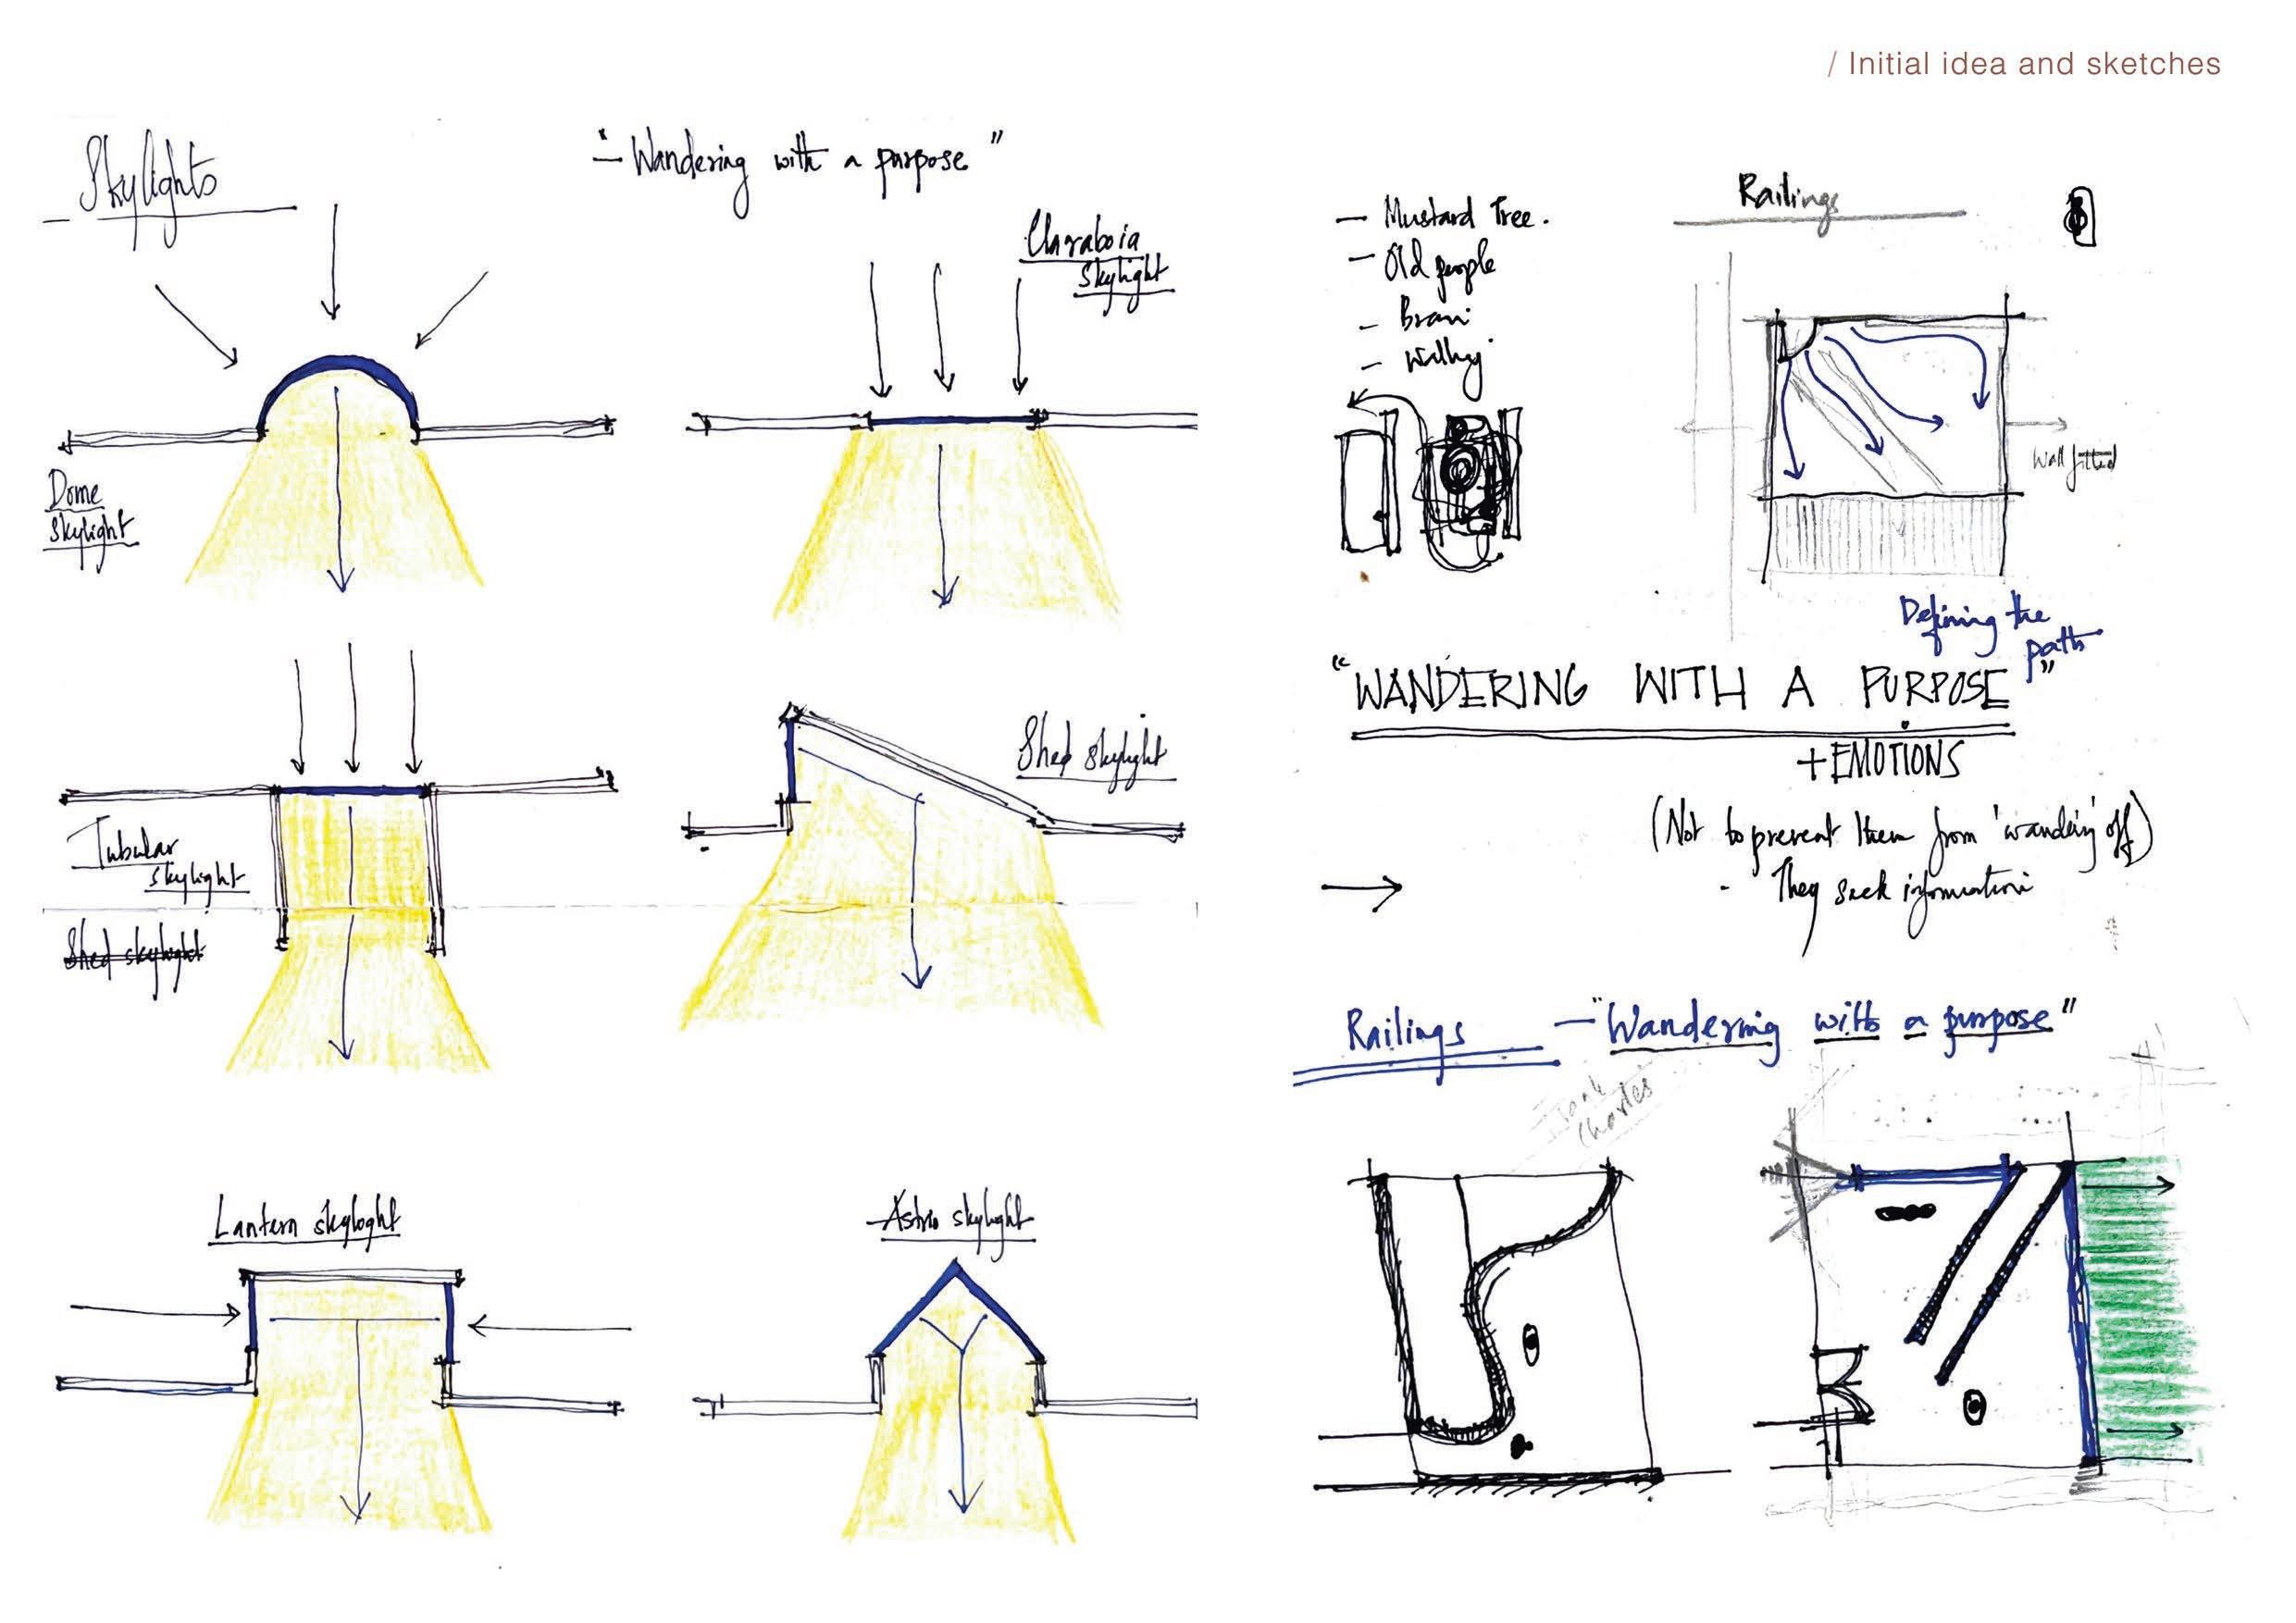 / Initial idea and sketches
Skylights
"- Wandering with a purpose"
Claraboia
Skylight
Dome
skylight
Tubular
skylight
Shed skylight
Shed skylight
Lantern skyloght
Astro skylight
- Mustard Tree.
- Old people
Railings
Wall fitted
Defining the
path
"WANDERING WITH A PURPOSE"
+ EMOTIONS
(Not to prevent them from 'wandering' off)
- They seek information
Railings - "Wandering with a purpose"
Charles